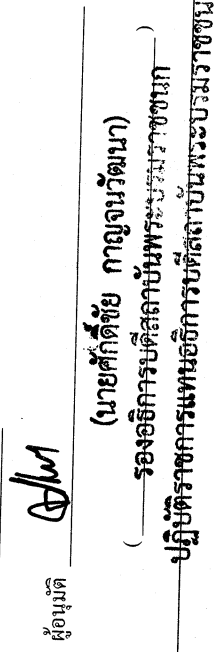 ผู้อนุมัติ
(นายศักดิ์ชัย กาญจนวัฒนา)
( รองอธิการบดีสถาบันพระบรมราชชนก )
ปฏิบัติราชการแทนอธิการบดีสถาบันพระบรมราชชนก